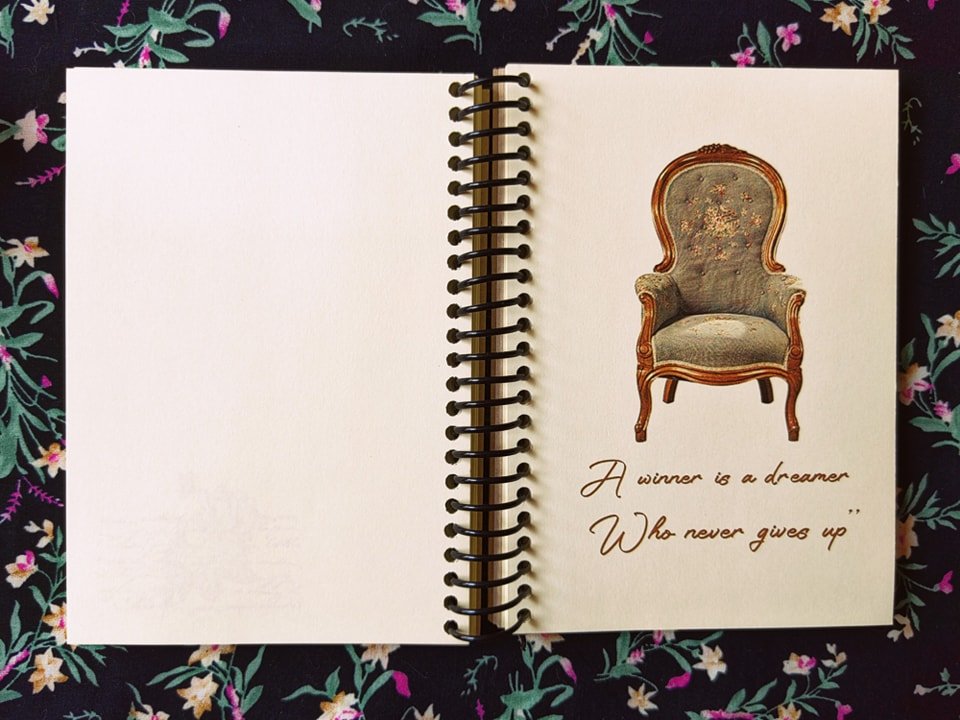 A winner is a dreamer
Who never gives up”